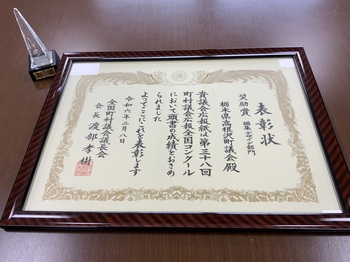 表彰状
奨励賞 編集デザイン部門
栃木県高根沢町議会殿
貴議会広報紙は第三十八回
町村議会広報全国コンクール
において頭書の成績をおさめ
られました
よってここにこれを表彰します
令和六年二月八日
全国町村議会議長会
会長 渡部孝樹